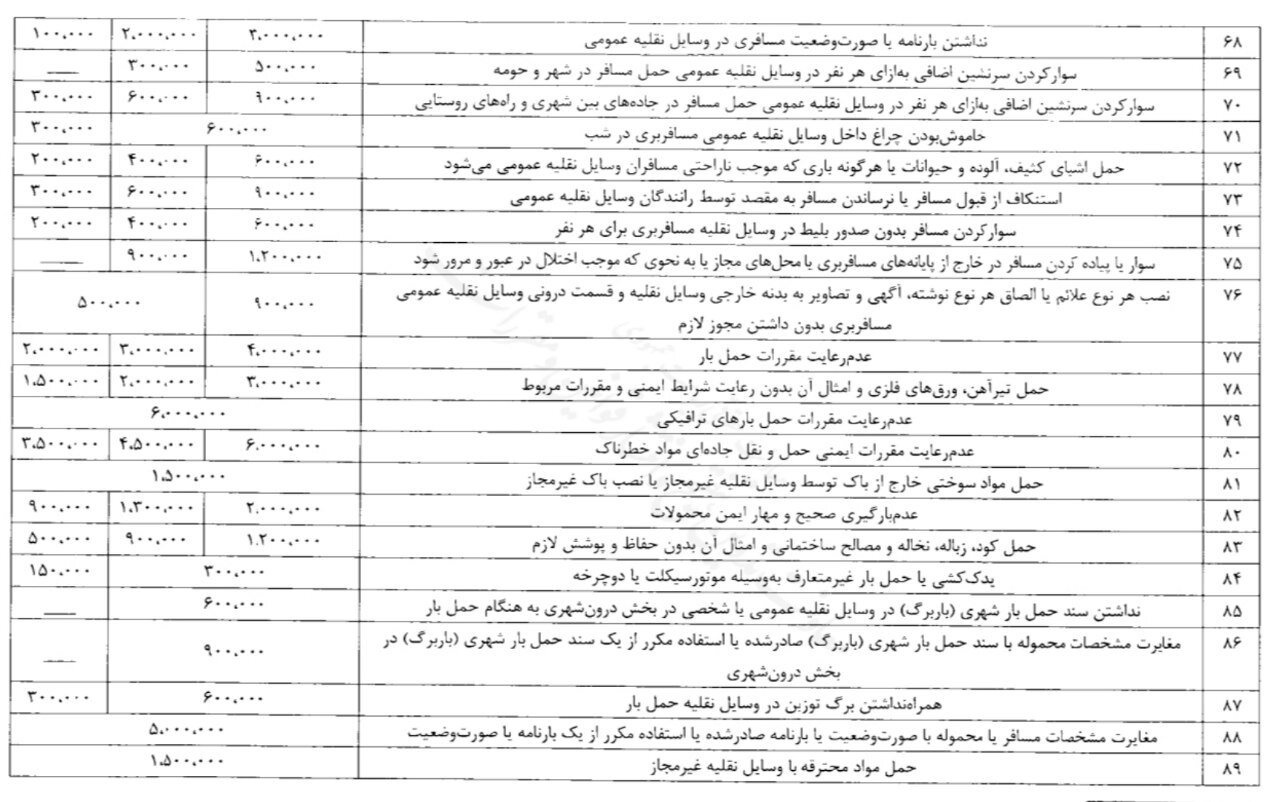 ۶۸ نداشتن بارنامه یا صورت‌وضعیت مسافری در وسایل نقلیه عمومی ۳٬۰۰۰٬۰۰۰ ۲٬۰۰۰٬۰۰۰ ۱۰۰٬۰۰۰
۶۹ سوارکردن سرنشین اضافی به‌ازای هر نفر در وسایل نقلیه عمومی حمل مسافر در شهر و حومه ۵۰۰٬۰۰۰ ۳۰۰٬۰۰۰ ___
۷۰ سوارکردن سرنشین اضافی به‌ازای هر نفر در وسایل نقلیه عمومی حمل مسافر در جاده‌های بین شهری و راه‌های روستایی ۹۰۰٬۰۰۰ ۶۰۰٬۰۰۰ ۳۰۰٬۰۰۰
۷۱ خاموش‌بودن چراغ داخل وسایل نقلیه عمومی مسافربری در شب ۶۰۰٬۰۰۰ ۳۰۰٬۰۰۰
۷۲ حمل اشیای کثیف، آلوده و حیوانات یا هرگونه باری که موجب ناراحتی مسافران وسایل نقلیه عمومی می‌شود ۶۰۰٬۰۰۰ ۴۰۰٬۰۰۰ ۲۰۰٬۰۰۰
۷۳ استنکاف از قبول مسافر یا نرساندن مسافر به مقصد توسط رانندگان وسایل نقلیه عمومی ۹۰۰٬۰۰۰ ۶۰۰٬۰۰۰ ۳۰۰٬۰۰۰
۷۴ سوارکردن مسافر بدون صدور بلیط در وسایل نقلیه مسافربری برای هر نفر ۶۰۰٬۰۰۰ ۴۰۰٬۰۰۰ ۲۰۰٬۰۰۰
۷۵ سوار یا پیاده کردن مسافر در خارج از پایانه‌های مسافربری یا محل‌های مجاز یا به نحوی که موجب اختلال در عبور و مرور شود ۱٬۲۰۰٬۰۰۰ ۹۰۰٬۰۰۰ ___
۷۶ نصب هر نوع علائم یا الصاق هر نوع نوشته، آگهی و تصاویر به بدنه خارجی وسایل نقلیه و قسمت درونی وسایل نقلیه عمومی ۹۰۰٬۰۰۰ ۵۰۰٬۰۰۰
مسافربری بدون داشتن مجوز لازم
۷۷ عدم‌رعایت مقررات حمل بار ۴٬۰۰۰٬۰۰۰ ۳٬۰۰۰٬۰۰۰ ۲٬۰۰۰٬۰۰۰
۷۸ حمل تیرآهن، ورق‌های فلزی و امثال آن بدون رعایت شرایط ایمنی و مقررات مربوط ۳٬۰۰۰٬۰۰۰ ۲٬۰۰۰٬۰۰۰ ۱٬۵۰۰٬۰۰۰
۷۹ عدم‌رعایت مقررات حمل بارهای ترافیکی ۶٬۰۰۰٬۰۰۰
۸۰ عدم‌رعایت مقررات ایمنی حمل و نقل جاده‌ای مواد خطرناک ۶٬۰۰۰٬۰۰۰ ۴٬۵۰۰٬۰۰۰ ۳٬۵۰۰٬۰۰۰
۸۱ حمل مواد سوختی خارج از باک توسط وسایل نقلیه غیرمجاز یا نصب باک غیرمجاز ۱٬۵۰۰٬۰۰۰
۸۲ عدم‌بارگیری صحیح و مهار ایمن محمولات ۲٬۰۰۰٬۰۰۰ ۱٬۳۰۰٬۰۰۰ ۹۰۰٬۰۰۰
۸۳ حمل کود، زباله، نخاله و مصالح ساختمانی و امثال آن بدون حفاظ و پوشش لازم ۱٬۲۰۰٬۰۰۰ ۹۰۰٬۰۰۰ ۵۰۰٬۰۰۰
۸۴ یدک‌کشی یا حمل بار غیرمتعارف به‌وسیله موتورسیکلت یا دوچرخه ۳۰۰٬۰۰۰ ۱۵۰٬۰۰۰
۸۵ نداشتن سند حمل بار شهری (باربرگ) در وسایل نقلیه عمومی یا شخصی در بخش درون‌شهری به هنگام حمل بار ۶۰۰٬۰۰۰ ___
۸۶ مغایرت مشخصات محموله با سند حمل بار شهری (باربرگ) صادرشده یا استفاده مکرر از یک سند حمل بار شهری (باربرگ) در ۹۰۰٬۰۰۰ ___
بخش درون‌شهری
۸۷ همراه‌نداشتن برگ توزین در وسایل نقلیه حمل بار ۶۰۰٬۰۰۰ ۳۰۰٬۰۰۰
۸۸ مغایرت مشخصات مسافر یا محموله با صورت‌وضعیت یا بارنامه صادرشده یا استفاده مکرر از یک بارنامه یا صورت‌وضعیت ۵٬۰۰۰٬۰۰۰
۸۹ حمل مواد محترقه با وسایل نقلیه غیرمجاز ۱٬۵۰۰٬۰۰۰